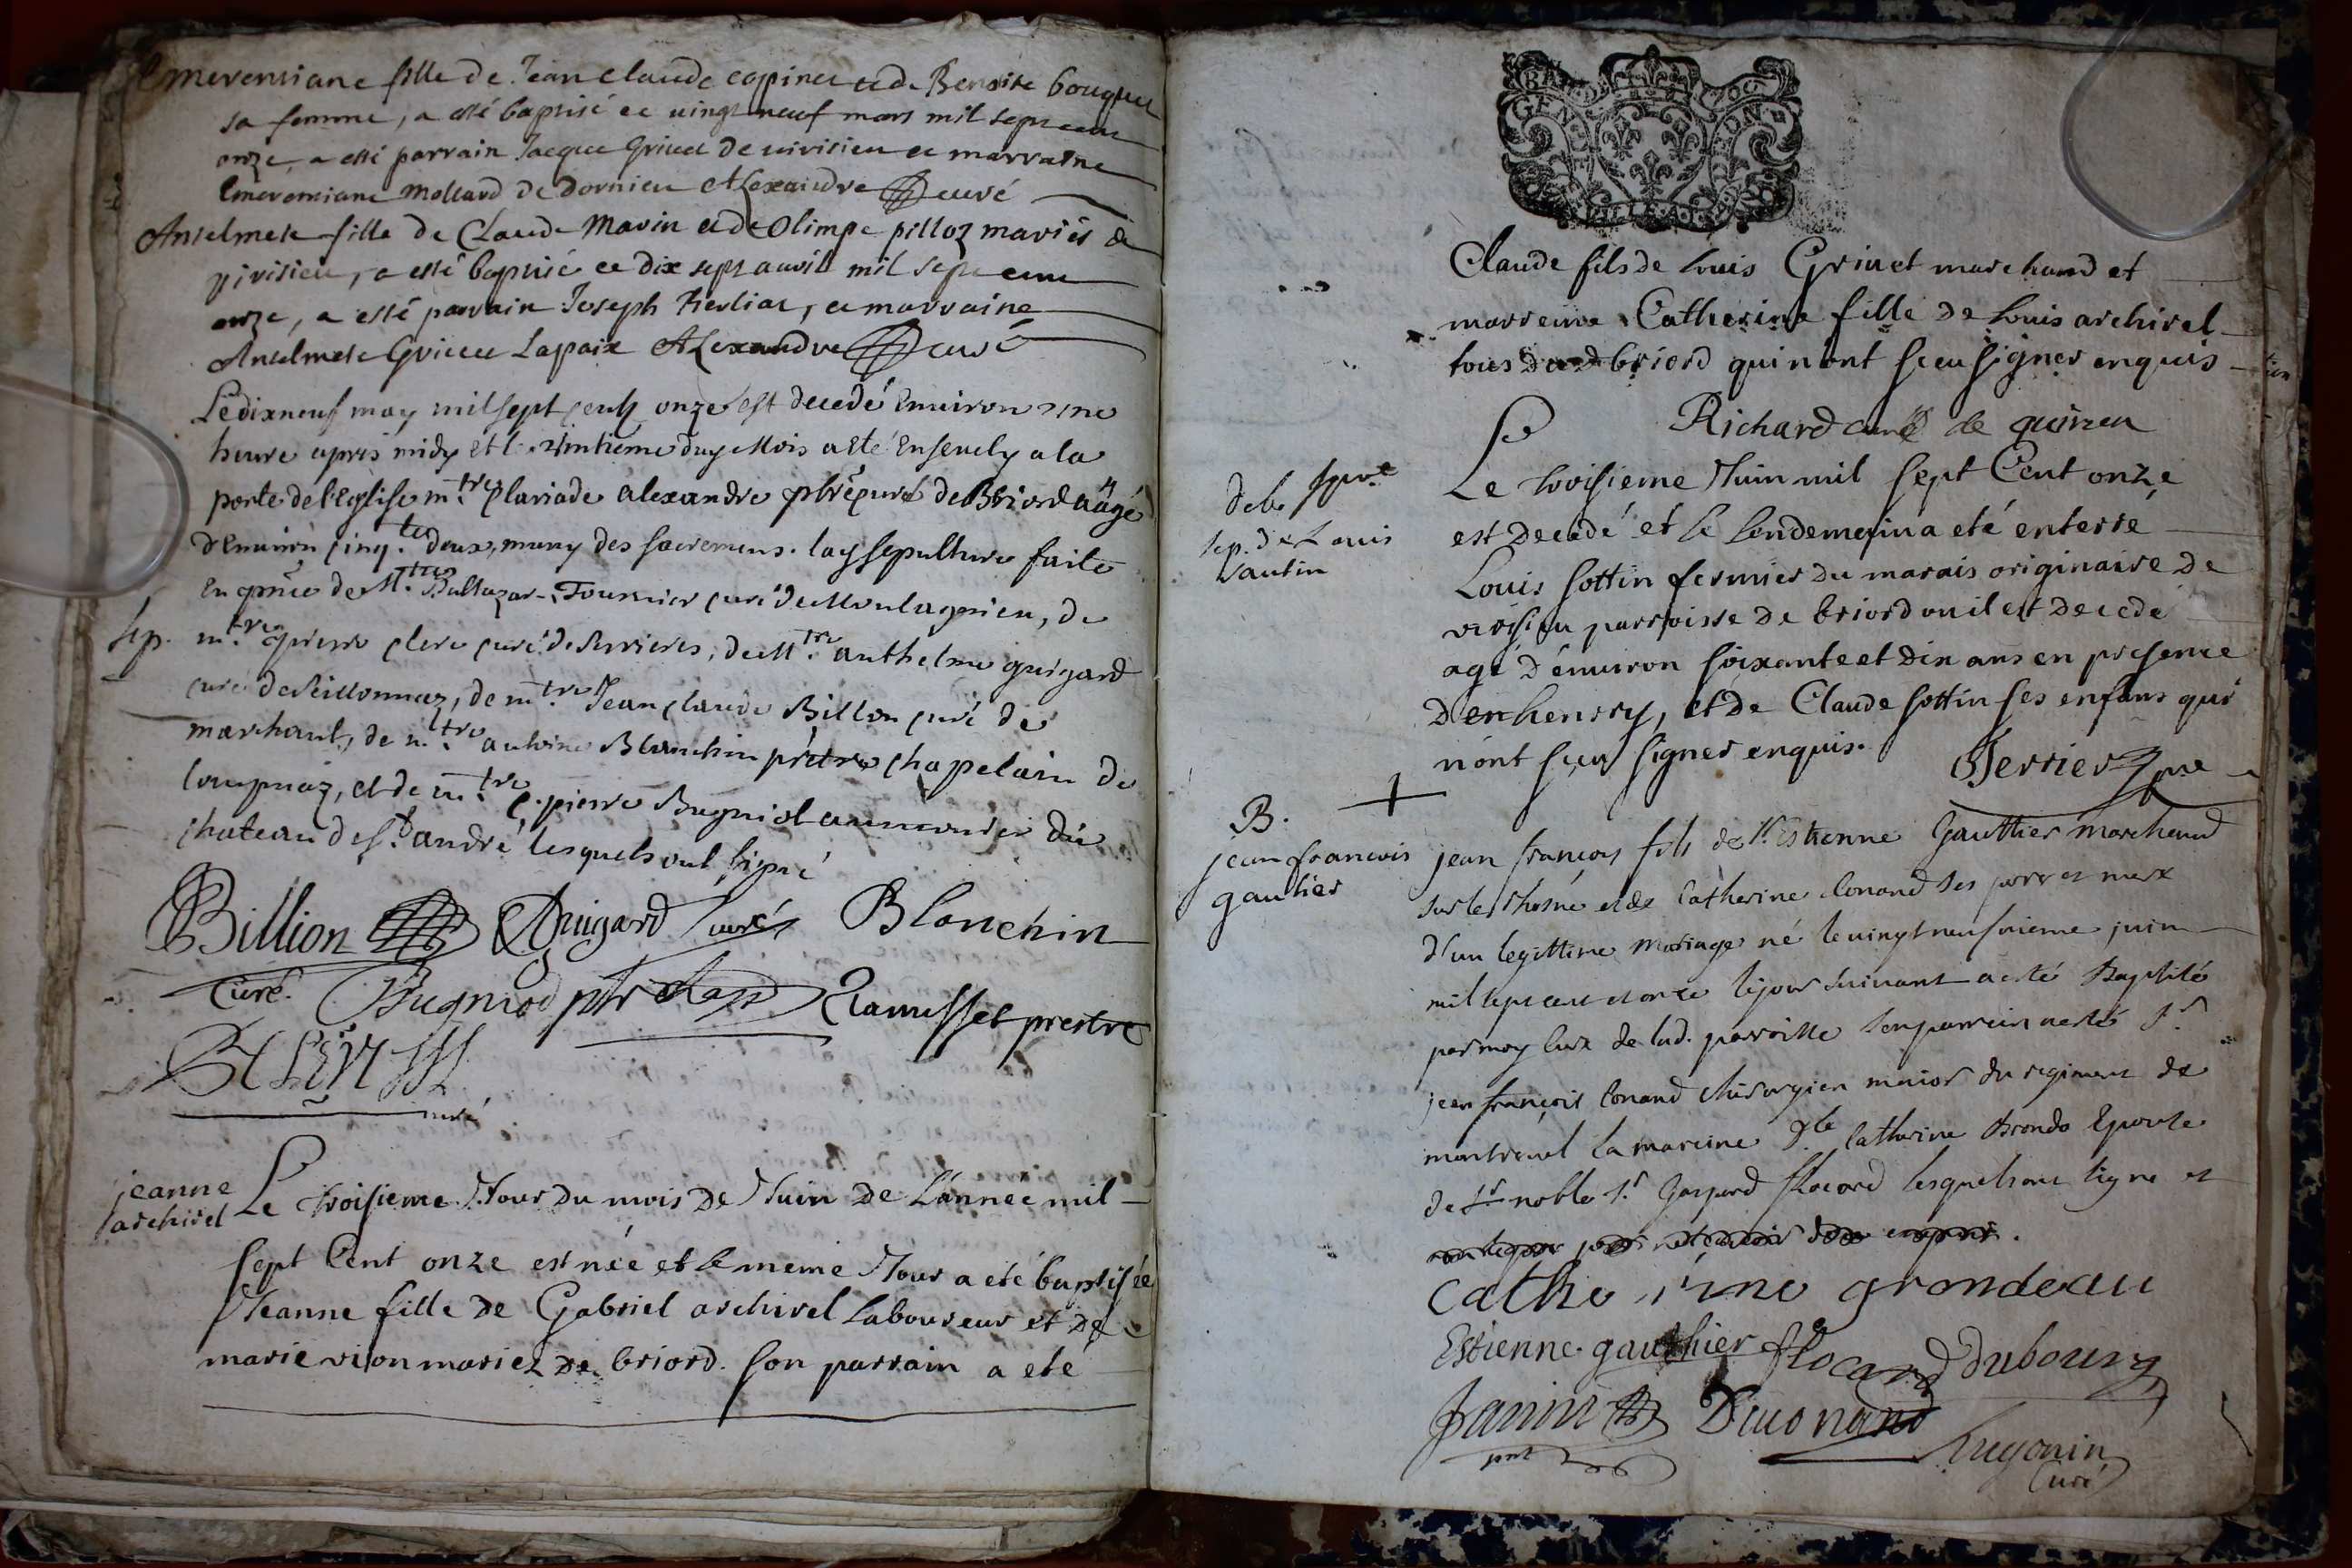 Emerentiane fille de Jean Claude copinet et de Benoite bouquet
sa femme, a esté baptisé ce vingt neuf mars mil sept cent
onze a esté parrain Jacque Grivet de vivisieu et marraine
Emerentiane Mollard de Dornieu Alexandre curé
Anselmete fille de Claude Marin et de Olimpe pilloz mariés de
vivisieu, a esté baptisé ce dix sept avril mil sept cent
onze, a esté parrain Joseph, et marraine
Anselmete Grivet Lapaix Alexandre curé
Le dixneuf may mil sept centz onze est decedé Environ une
heure apres midy et le vintieme duy Mois a eté Ensevely a la
porte de l'Eglise m.tre Clariade alexandre ptre curé de Briord aagé
d'Environ cinq.te deux, muny des sacremens. lay sepulture faite
En pnce de M.tre Baltazar Fournier curé de Montagnieu, de
Sep. m.tre pierre clerc curé de Serrieres, de M.tre anthelme guigard
curé de Seillonnaz, de m.tre Jean claude Billon curé de
marchant, de m.tre antoine Blanchin prêtre chapelain de
Lompnaz, et de m.tre C. pierre Bugniot aumonier du
chateau de St. andré lesquels ont signé
Billion Guigard curé Blonchin
curé. Bugniod ptre Ramusset prestre
curé
jeanne
archirel
Le troisieme Jour du mois de Juin de L'année mil
sept Cent onze est née et le meme Jour a eté baptisée
Jeanne fille de Gabriel archirel Laboureur et de
marie vion mariez de briord. son parrain a eté
GENE ON
Claude fils de Louis Grivet marchand et
marreine Catherine fille de Louis archirel
tous dud briord qui n'ont sceu signer enquis
Richard curé de quirieu
sep. de Louis
sautin
Le troisieme Juin mil sept Cent onze
est decedé et le lendemain a eté enterré
Louis sottin fermier du marais originaire de
verisieu parroisse de briord ou il est decedé
agé d'environ soixante et dix ans en presence
d'enhenrry, et de Claude sottin ses enfans qui
n'ont sceu signer enquis.
Perrier
B.
jean francois
gautier
jean françois fils de Sr Estienne Gautthier marchand
sur le rhosne et de Catherine Conand ses pere et mere
d'un legittime mariage né le vingt neufvieme juin
mil sept cent et onze le jour suivant a esté Baptisé
par moy curé de lad. parroisse son parrein a esté Sr.
jean françois Conand chirurgien maior du regiment de
montrevel la mareine Dlle Catherine Grondo Epouse
de Sr noble Sr. Gaspard flocard lesquels ont signe et
catherine grondeau
Estienne. gauthier flocard dubourg
Janin
Hugonin
Curé